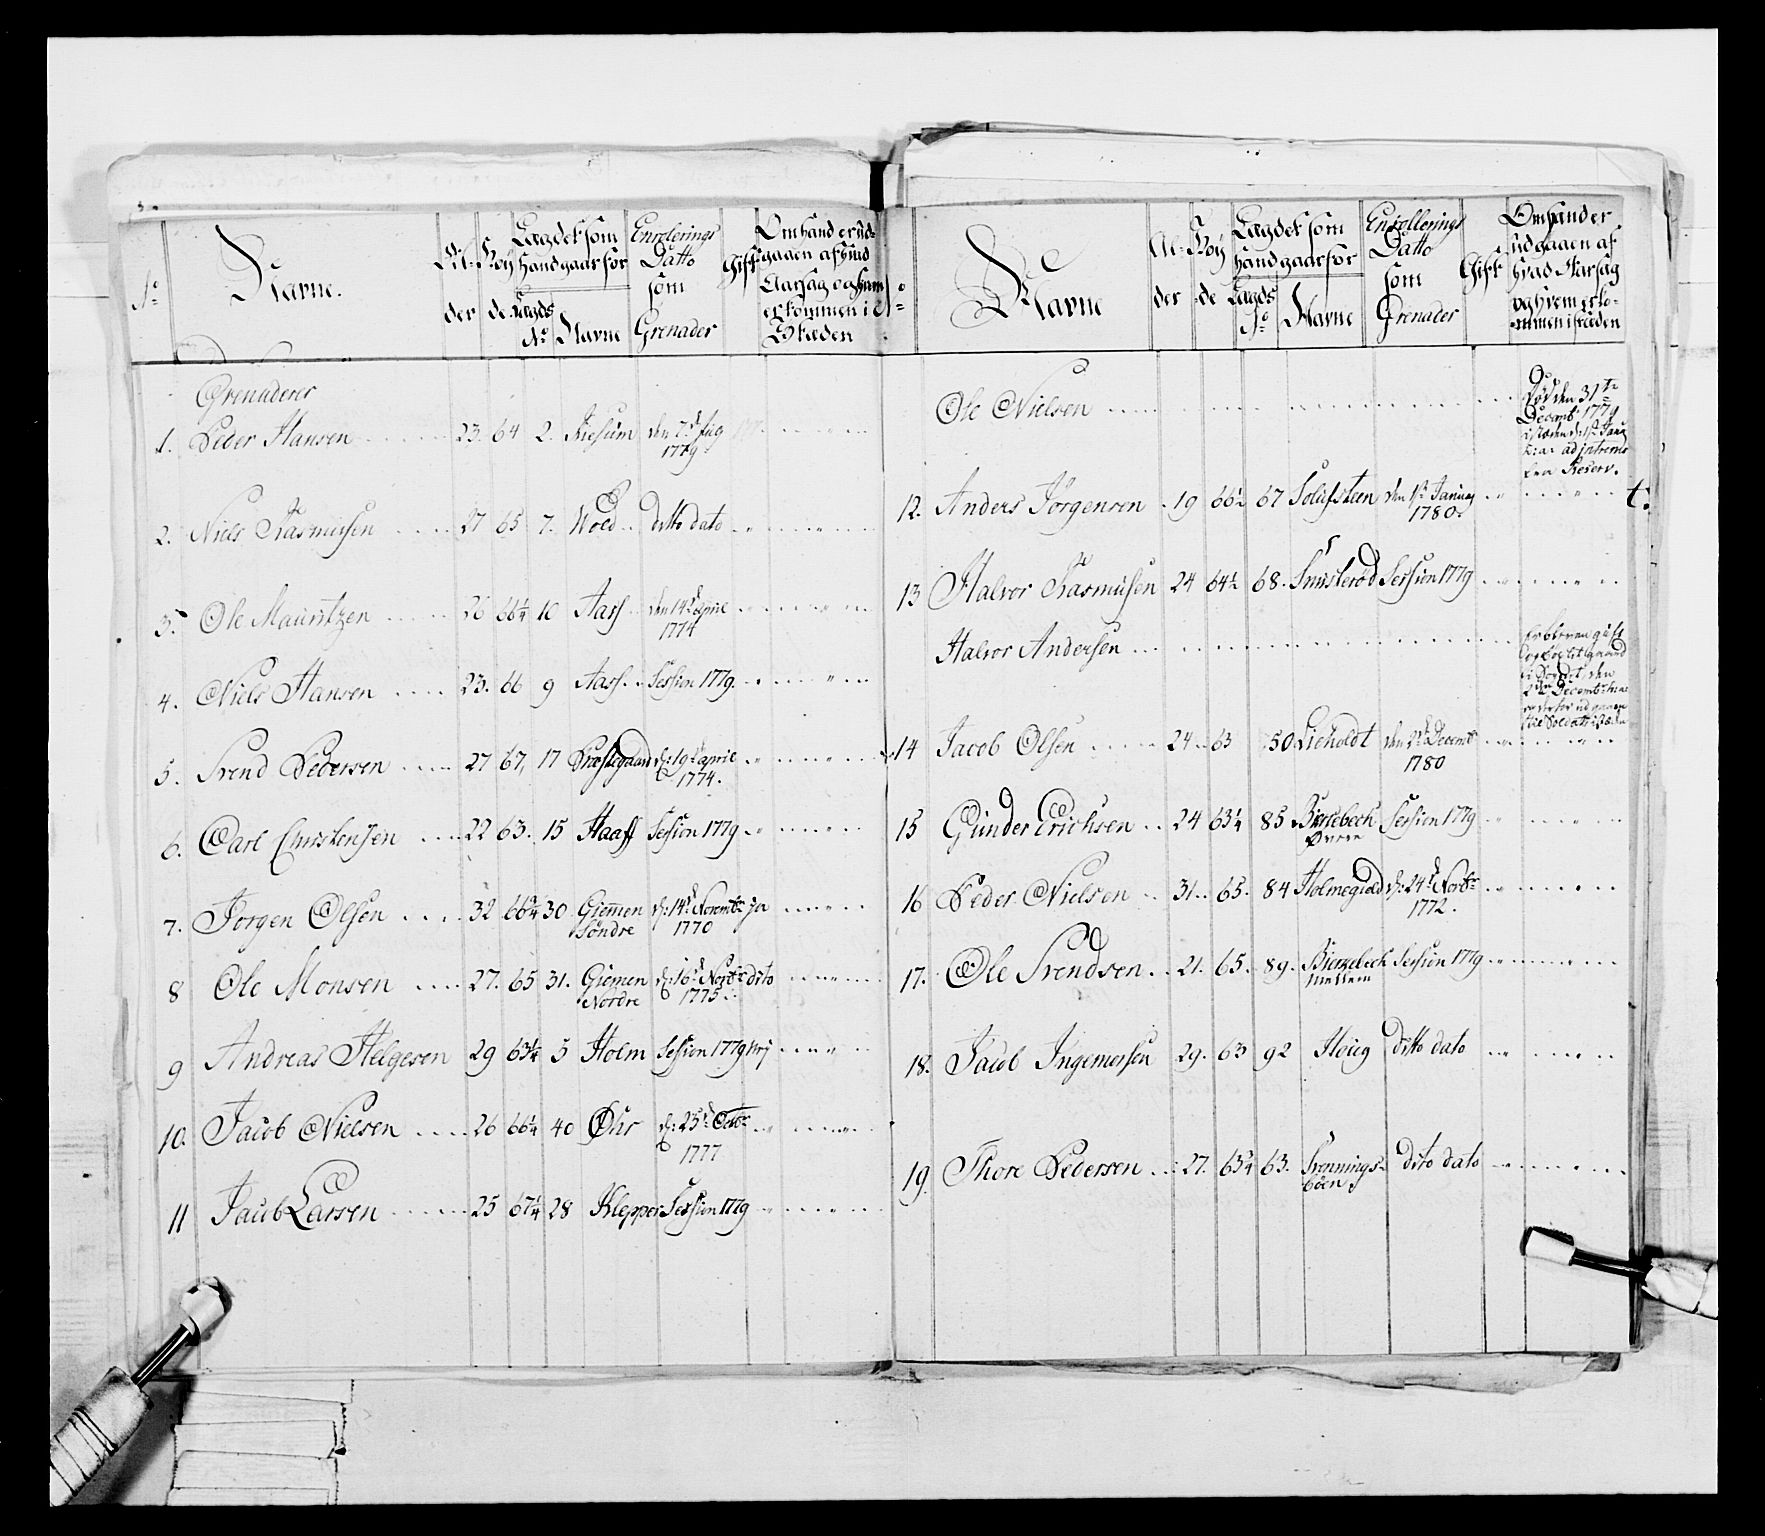 No Navne. Al-der Høy-de Lagdet som Hand gaar for Lagds No Navne Enrolerings Datto som Grenader Gift Om hand er ud-gaaen af hvad Aarsag og hvem er kommen i Stæden
Grenaderer
1. Peder Hansen 23. 64 2. Riesum den 7de 1779
2. Niels Rasmusen 27 65 7. Woed ditto dato
3. Ole Mauritzen 26 66¼ 10 Aass den 14d aprie 1774
4. Niels Hansen 23. 66 9 Aass Session 1779
5. Svend Pedersen 27 67, 17 Præstegaard d: 19d aprie 1774.
6. Carl Christensen 22 63. 15 Haaff Session 1779
7. Jørgen Olsen 32 66¾ 30 Giemen Søndre d: 14d Novembr 1770 ja
8 Ole Monsen 27. 65 31. Giemen Nordre d: 16d Novbr 1775 dito
9 Andreas Helgesen 29 63¼ 5 Holm Session 1779
10. Jacob Nielsen 26 66¼ 40 Øhr d: 23d Octbr 1777
11 Jacob Larsen 25 67¼ 28 Klepper Session 1779
No Navne Al-der Høy-de Lagdet som Hand gaar for Lagds No Navne Enrollerings Datto som Grenader Gift Om hand er udgaaen af hvad Aarsag og hvem er ko-mmen i stæden
Ole Nielsen Død den 31te Decemb: 1779 i stæden d: 1ste Janu
12. Anders Jørgensen 19 66½ 67 Solufsteen den 1ste Januarij 1780. t.
13 Halvor Rasmusen 24 64½ 68. Smisterød Session 1779
Halvor Andersen
14 Jacob Olsen 24 63 50. Lieholdt den 2d Decembr 1780
15 Gunder Erichsen 24 63¼ 85 Bierkebech Øvere Session 1779
16 Peder Nielsen 31. 65. 84 Holmegield d: 24d Novbr 1772.
17. Ole Svendsen 21. 65. 89. Bierkebech Mellem Session 1779
18. Jacob Ingemorsen 29. 63 92 Høieg ditto dato
19. Thore Pedersen 27. 63¾ 63. Svennings-bøen dito dato